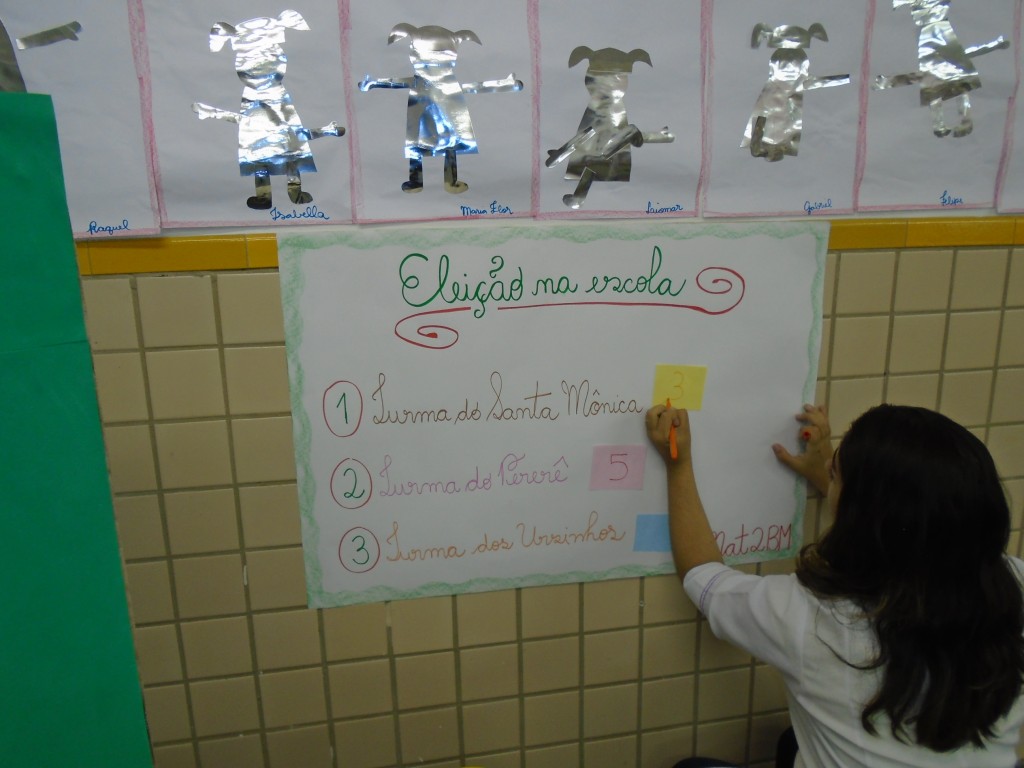 Raquel
Isabella
Maria Flor
Laiomar
Gabriel
Felipe
Eleição na escola
1 Turma do Santa Mônica 3
2 Turma do Pererê 5
3 Turma dos Ursinhos
Mat2BM